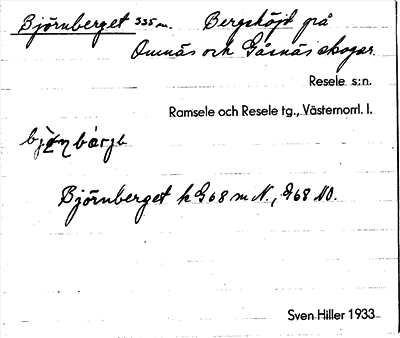 Björnberget 335 m. Bergshöjd på
Omnäs och Gåsnäs skogar.
Resele s:n.
Ramsele och Resele tg., Västernorrl. l.
Björnberget k G68 m N., G68 NO.
Sven Hiller 1933